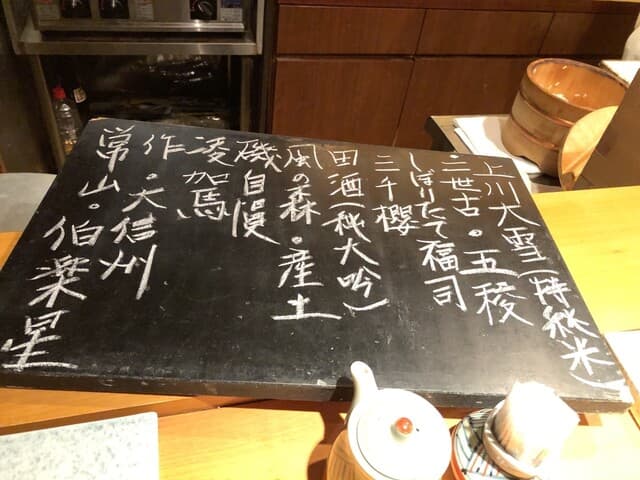 上川大雪(特純米)
・二世古・五稜
しぼりたて福司
三千櫻
田酒(純大吟)
風の森・産土
磯自慢
凌加馬
作・大信州
常山・伯楽星